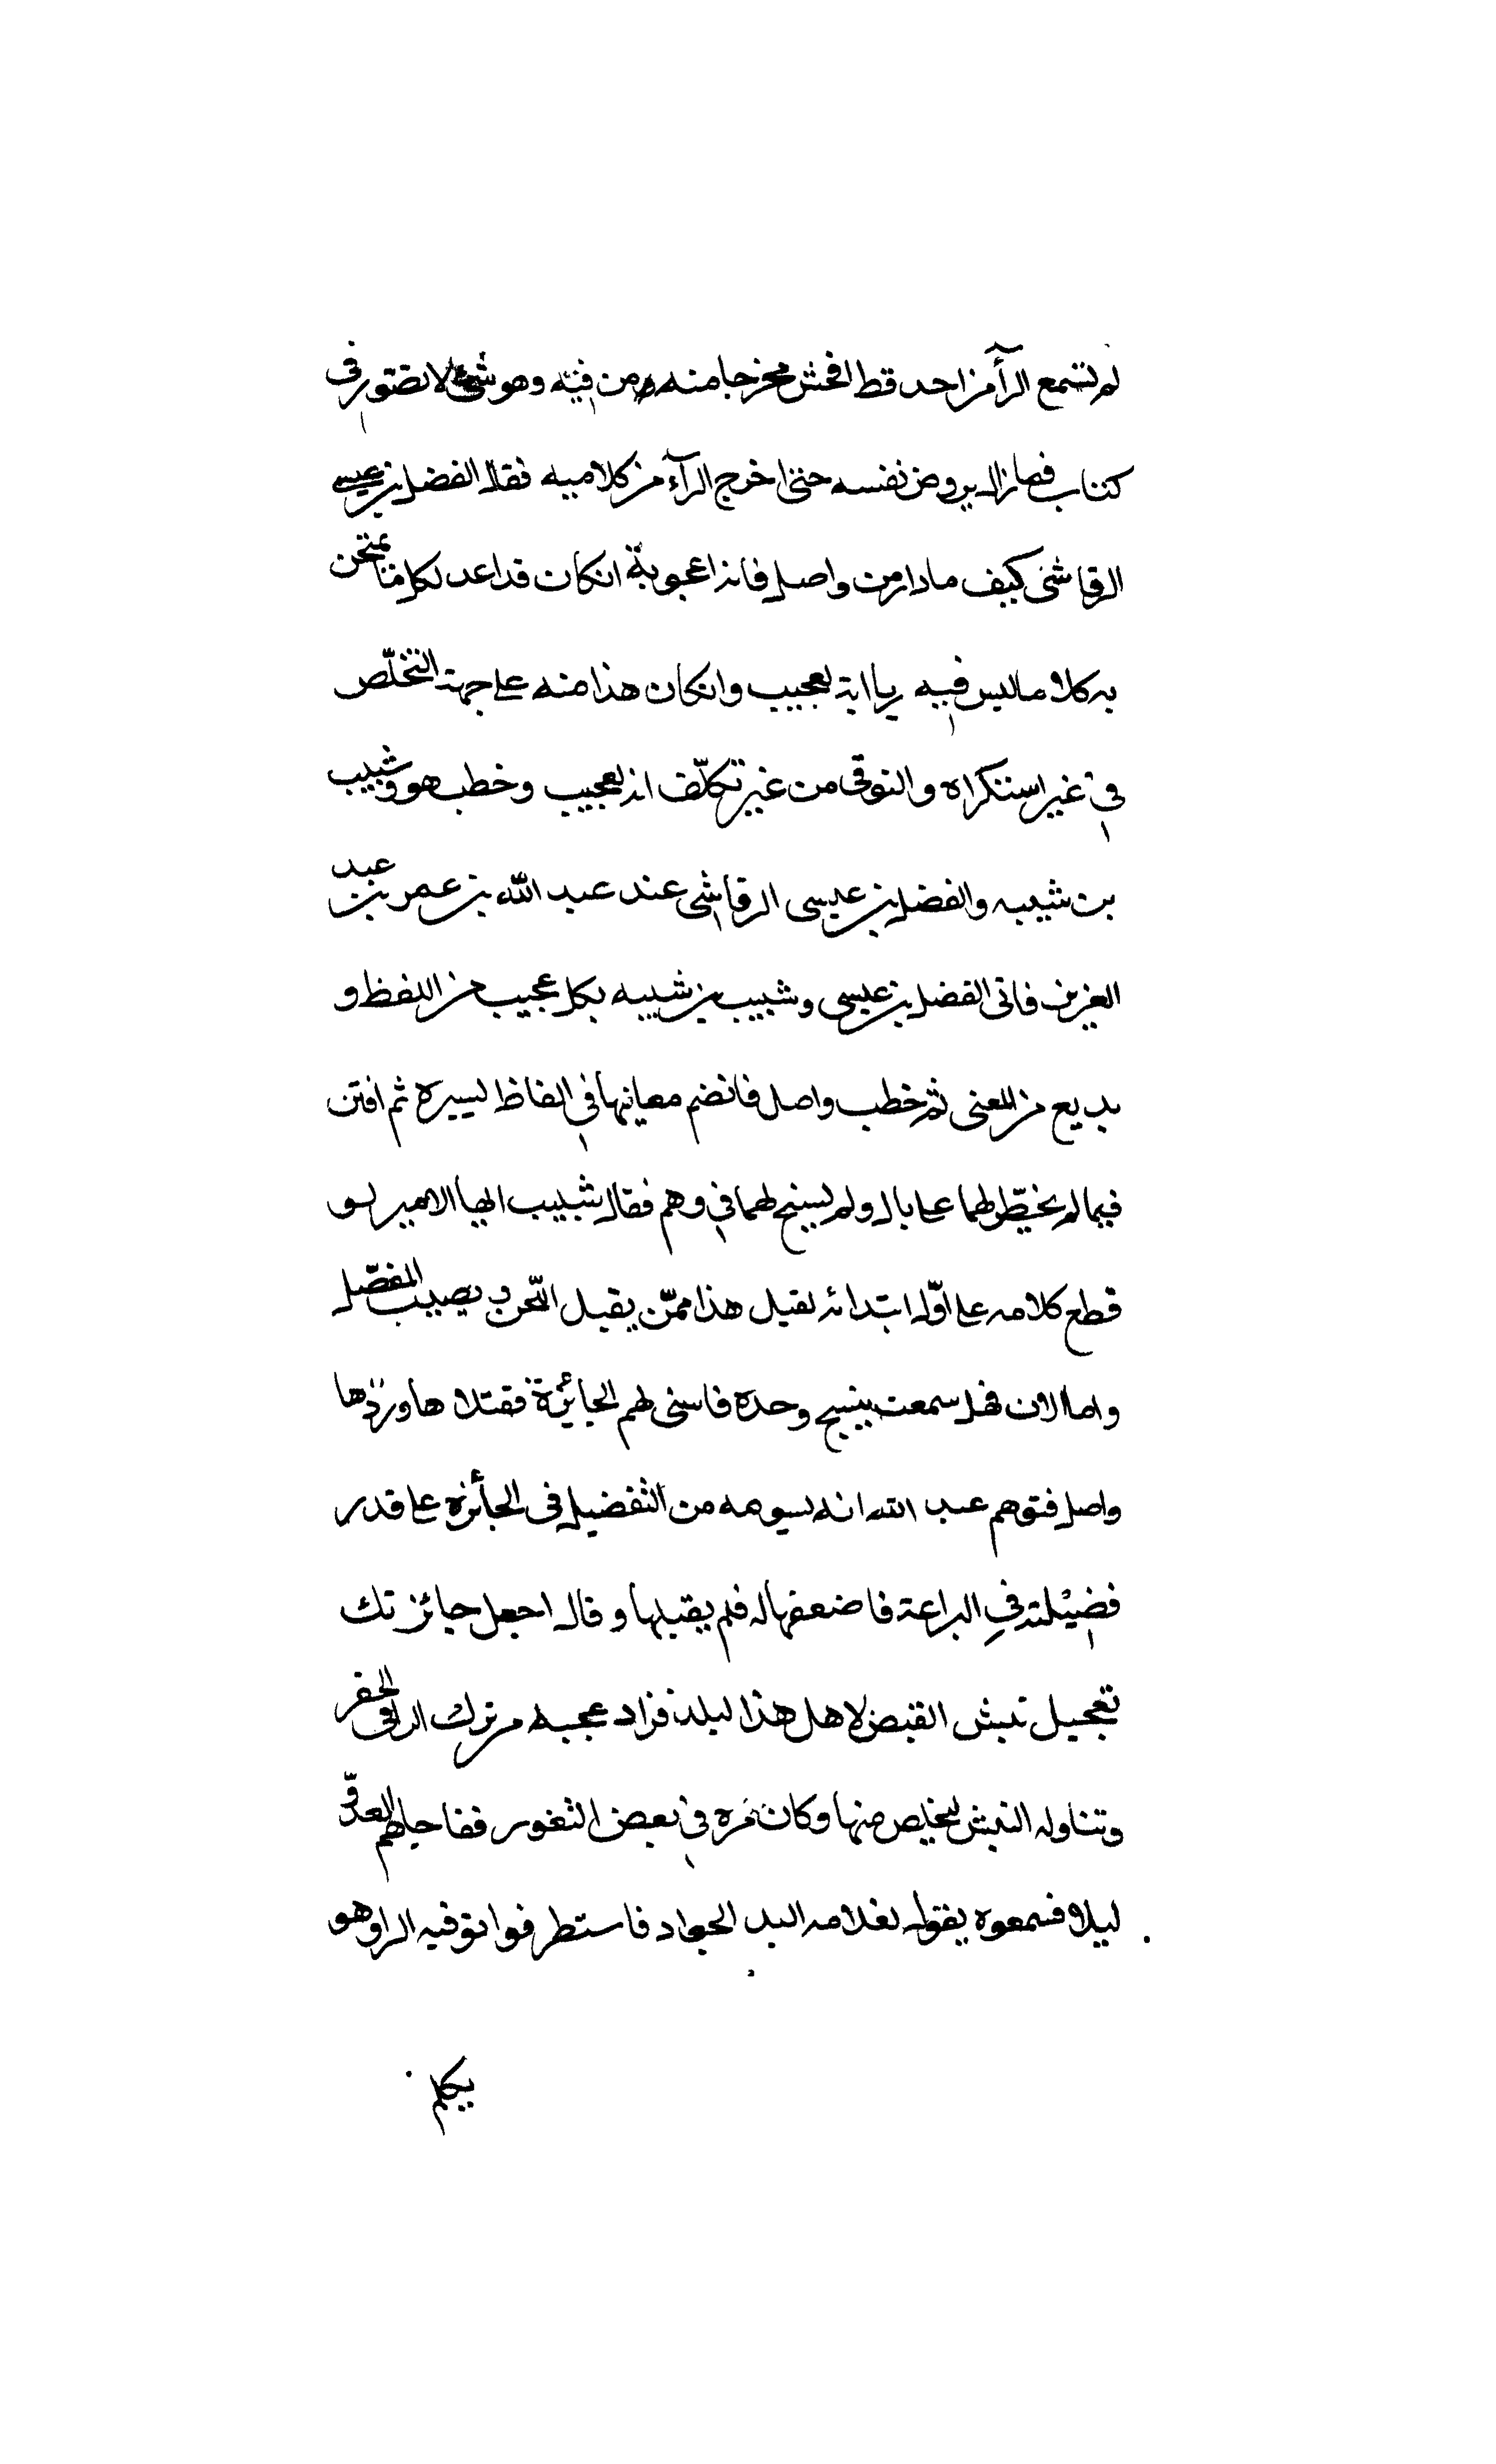 لم تسمع الرآء من احد قط افحش مخرجا منه من فيه وهو شئ لا يتصور فى
كتاب فما زال يروض نفسه حتى اخرج الرآء من كلاميه فقال الفضل بن عيسى
الرقاشى كيف مادار من واصل فانه اعجوبة ان كان قد اعد لكل ما يمتحن
به كلاما ليس فيه راانه لعجيب وان كان هذا منه على جهة التخلّص
في غير استنكراه والتوقى من غير تكلّف انه لعجيب وخطب هو وشبيب
بن شيبه والفضل بن عيسى الرقاشى عند عبد الله بن عمر بن عبد
العزيز فاتى الفضل بن عيسى وشبيب بن شيبه بكل عجيب من اللفظ و
بديع من المعنى ثم خطب واصل فانضم معانيها في الفاظ يسيرة ثم افتن
فيما لم يخيطّر لهما على بال ولم يسنح لهما في وهم فقال شبيب ايها الامير لو
قطع كلامه على اوّل ابتدائه لقيل هذا ممّن يقبل اللّحن و يصيب المفصّل
واما الان فهل سمعت بنسيج وحده فاسنى لهم الجائزة فقتلا ها وردّها
واصل فتوهم عبد الله انه يسومه من التفضيل فى الجأئزه على قدر
فضيلته في البراعة فاضعفها له فلم يقبلها وقال اجعل جائزتك
تعجيل نبش القبض لاهل هذا لبلد فزاد عجبه من ترك الرافى الحفر
وتناوله النبش ليخلص منها وكان مره في بعض الثغور ففاجاهم العدوّ
ليلا فسمعوه يقول لغلامه البد الجواد فاستطرفوا توقيه الرا وهو
يتكلم